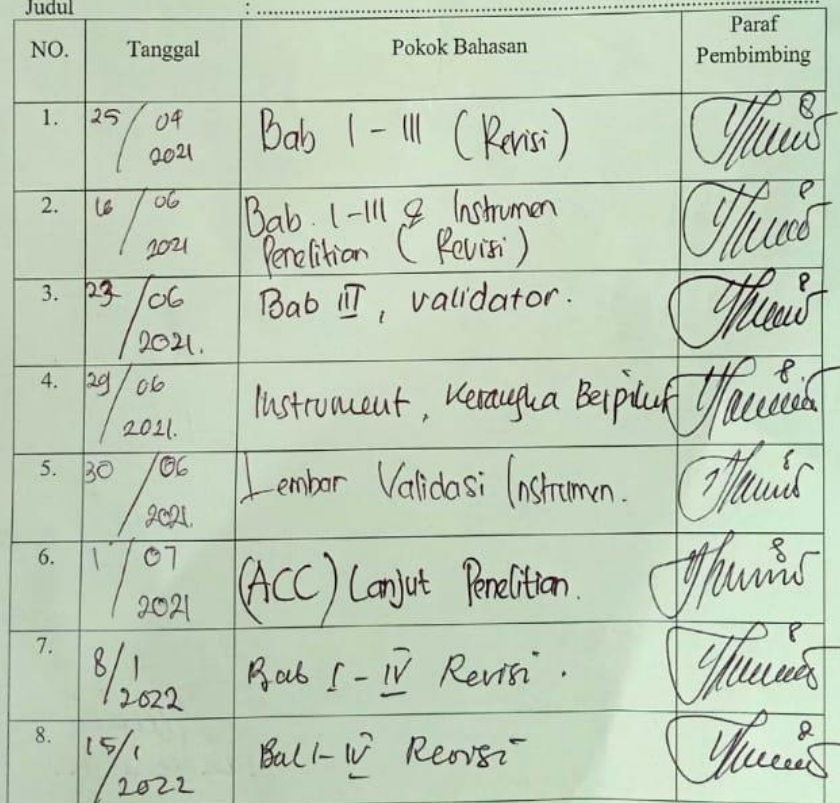 Judul :
NO. Tanggal Pokok Bahasan Paraf Pembimbing
1. 25/04 2021 Bab I - III (Revisi)
2. 16/06 2021 Bab. I-III & Instrumen
Penelitian (Revisi)
3. 23/06 2021. Bab III, validator.
4. 29/06 2021. Instrument, Kerangka Berpikir
5. 30/06 2021. Lembar Validasi Instrumen.
6. 1/07 2021 (ACC) Lanjut Penelitian.
7. 8/1 2022 Bab I - IV Revisi.
8. 15/1 2022 Bab I-IV Reovsi